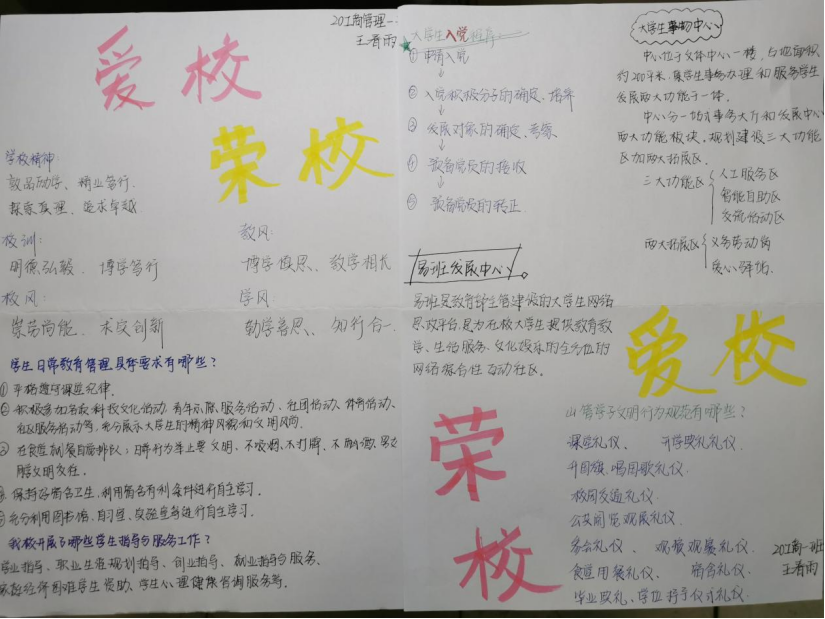 201工商管理一
王晋雨
爱校
荣校
学校精神:
敦品励学、精业笃行
探索真理、追求卓越
校训:
明德弘毅、博学笃行
教风:
博学慎思、教学相长
校风:
崇劳尚能、求实创新
学风:
勤学善思、知行合一
学生日常教育管理具体要求有哪些?
① 严格遵守课堂纪律.
积极参加各类科技文化活动、青年志愿服务活动、社团活动、体育活动、
社区服务活动等,充分展示大学生的精神风貌和文明风尚.
在食堂就餐自觉排队;日常行为举止要文明、不吸烟、不打牌、不酗酒、男女
文明交往.
保持好宿舍卫生,利用宿舍有利条件进行自主学习.
充分利用图书馆、自习室、实验室等进行自主学习.
我校开展了哪些学生指导与服务工作?
学业指导、职业生涯规划指导、创业指导、就业指导与服务、
家庭经济困难学生资助、学生心理健康咨询服务等.
大学生入党程序
① 申请入党
② 入党积极分子的确定、培养
③ 发展对象的确定、考察
④ 预备党员的接收
⑤ 预备党员的转正
易班发展中心
易班是教育部主管建设的大学生网络
思政平台,是为在校大学生提供教育教
学、生活服务、文化娱乐的全方位的
网络综合性互动社区.
大学生事务中心
中心位于文体中心一楼,占地面积
约200平米,集学生事务办理和服务学生
发展两大功能于一体.
中心分一站式事务大厅和发展中心
两大功能板块,规划建设三大功能
区加两大拓展区.
三大功能区
人工服务区
智能自助区
交流活动区
两大拓展区
义务劳动岗
爱心驿站.
爱校
荣校
山管学子文明行为规范有哪些?
课堂礼仪、开学典礼礼仪
升国旗、唱国歌礼仪
校园交通礼仪
公共阅览观展礼仪
集会礼仪、观演观赛礼仪
食堂用餐礼仪、宿舍礼仪
毕业典礼、学位授予仪式礼仪
201工商一班
王晋雨